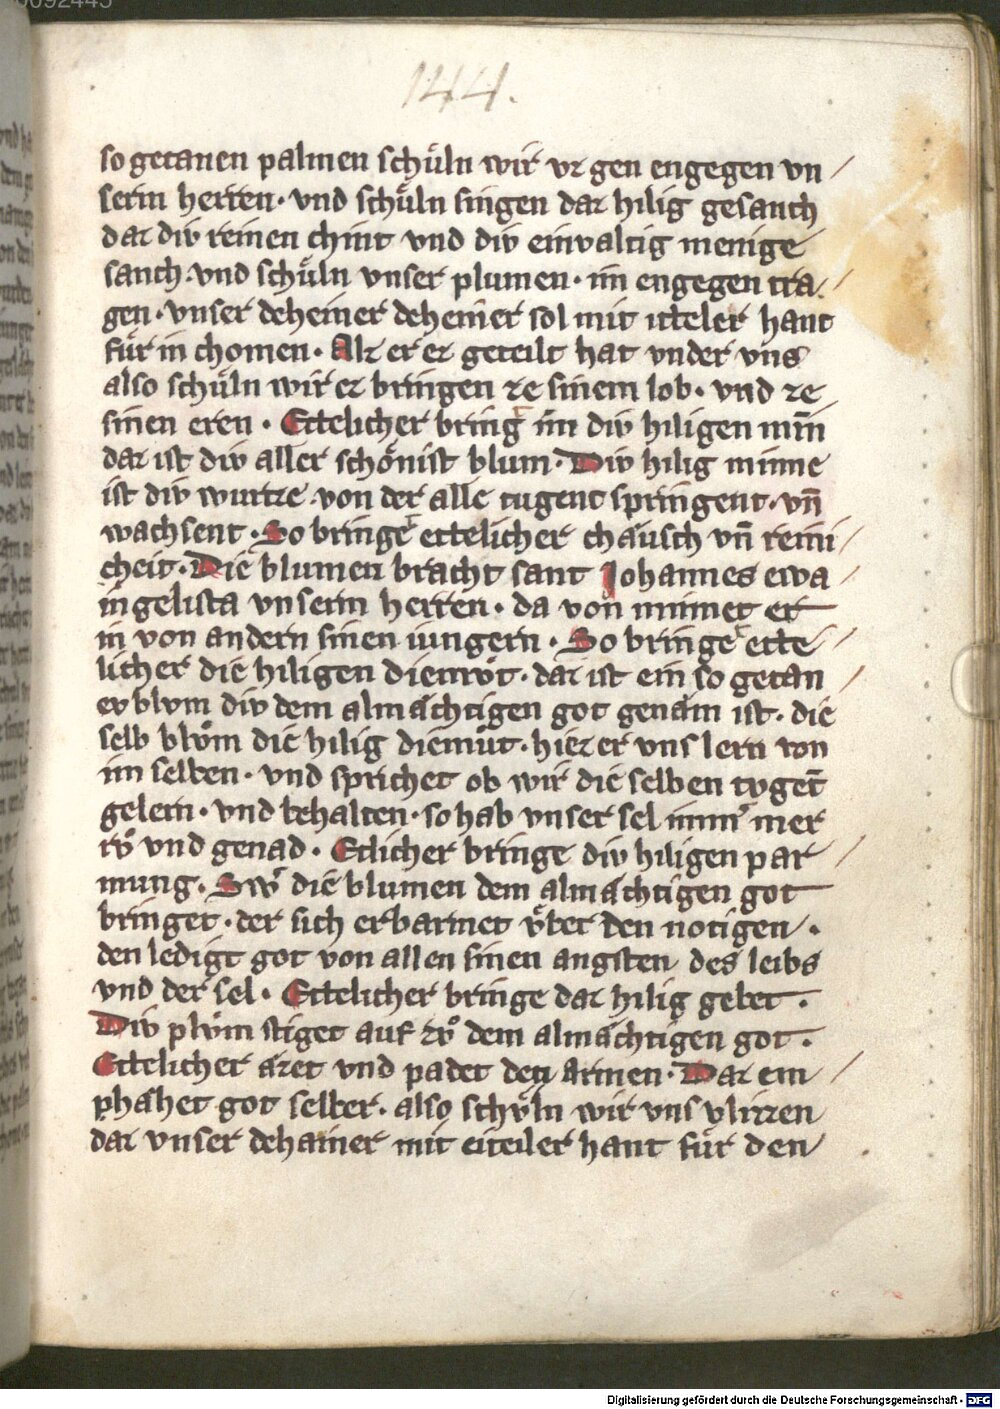 144.
so getanen palmen schuͤln wir vz gen engegen vn /
serm herren · vnd schuͤln singen daz hilig gesanch
daz div reinen chint vnd div einvaltig menige
sanch · vnd schuͤln vnser plumen · im engegen tra /
gen · vnser deheiner deheiner sol mit itteler hant
fuͤr in chomen · Alz er ez geteilt hat vnder vns
also schuͤln wir ez bringen ze sinem lob · vnd ze
sinen eren · Ettelicher bring im div hiligen min̄
daz ist div aller schoͤnist blum · Div hilig minne
ist div wurtze von der alle tugent springent · vn̄
wachsent · So bringe ettelicher chaͤusch vn̄ reini /
cheit · Die blumen bracht sant Johannes ewa /
ingelista vnserm herren · da von minnet er
in von andern sinen iungern · So bringe ette /
licher die hiligen diemvͦt · daz ist ein so getan /
ev blvm div dem almaͤchtigen got genaͤm ist · die
selb blvͦm die hilig diemuͦt · hiez er vns lern von
im selben · vnd sprichet ob wir die selben tvgent̄
gelern · vnd behalten · so hab vnser sel immˀ mer
rvͦ vnd genad · Etlicher bringe div hiligen par /
mung · Swˀ die blumen dem almaͤchtigen got
bringet · der sich erbarmet vͤber den notigen ·
den ledigt got von allen sinen angsten des leibs
vnd der sel · Ettelicher bringe daz hilig gebet ·
Div plvͦm stiget auf zvͦ dem almaͤchtigen got ·
Ettelicher aͤzet vnd padet den armen · Daz em /
phaͤhet got selber · also schvͤln wir vns vlizzen
daz vnser dehainer mit eiteiler hant fuͤr den
Digitalisierung gefördert durch die Deutsche Forschungsgemeinschaft - DFG